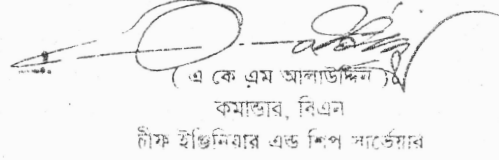 ( এ কে এম আলাউদ্দিন )
কমান্ডার, বিএন
চীফ ইঞ্জিনিয়ার এন্ড শিপ সার্ভেয়ার